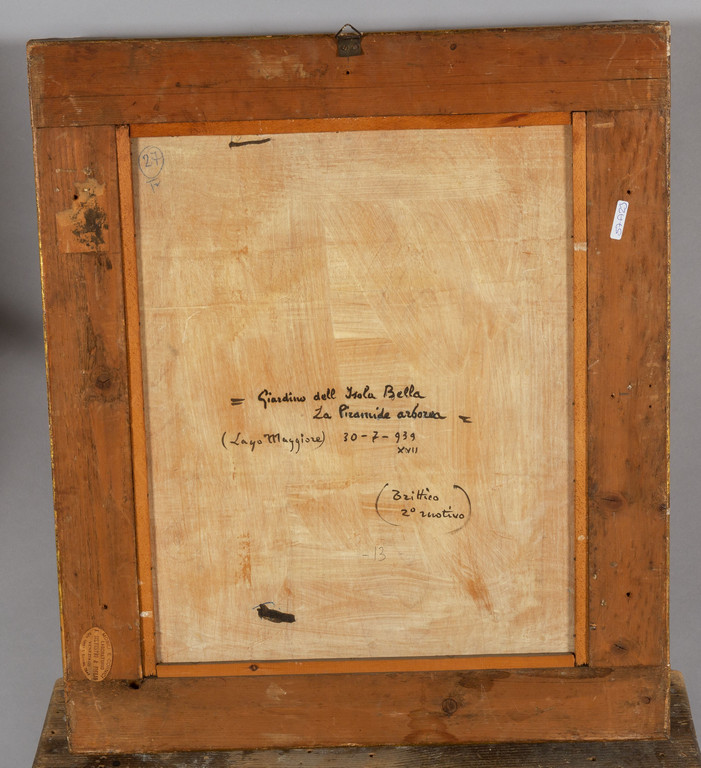 27
= Giardino dell Isola Bella
La Piramide arborea =
(Lago Maggiore) 30-7-939
XVII
(Trittico
2º motivo)
- 13 -